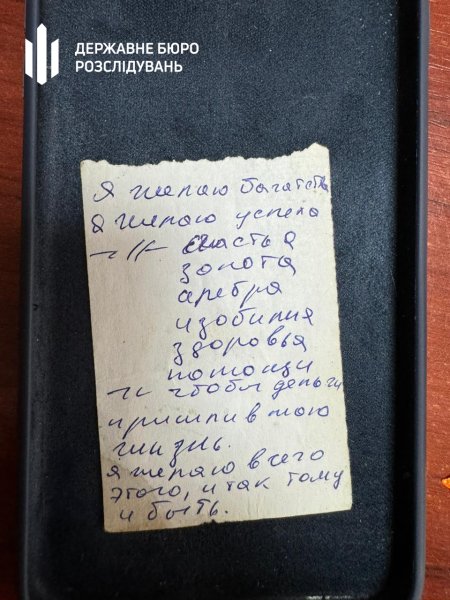 ДЕРЖАВНЕ БЮРО
РОЗСЛІДУВАНЬ
Я желаю богатств
Я желаю успеха
—//— счастья
золота
сребра
изобилия
здоровья
помощи
—//— чтобы деньги
пришли в мою
жизнь.
Я желаю всего
этого, и так тому
и быть.